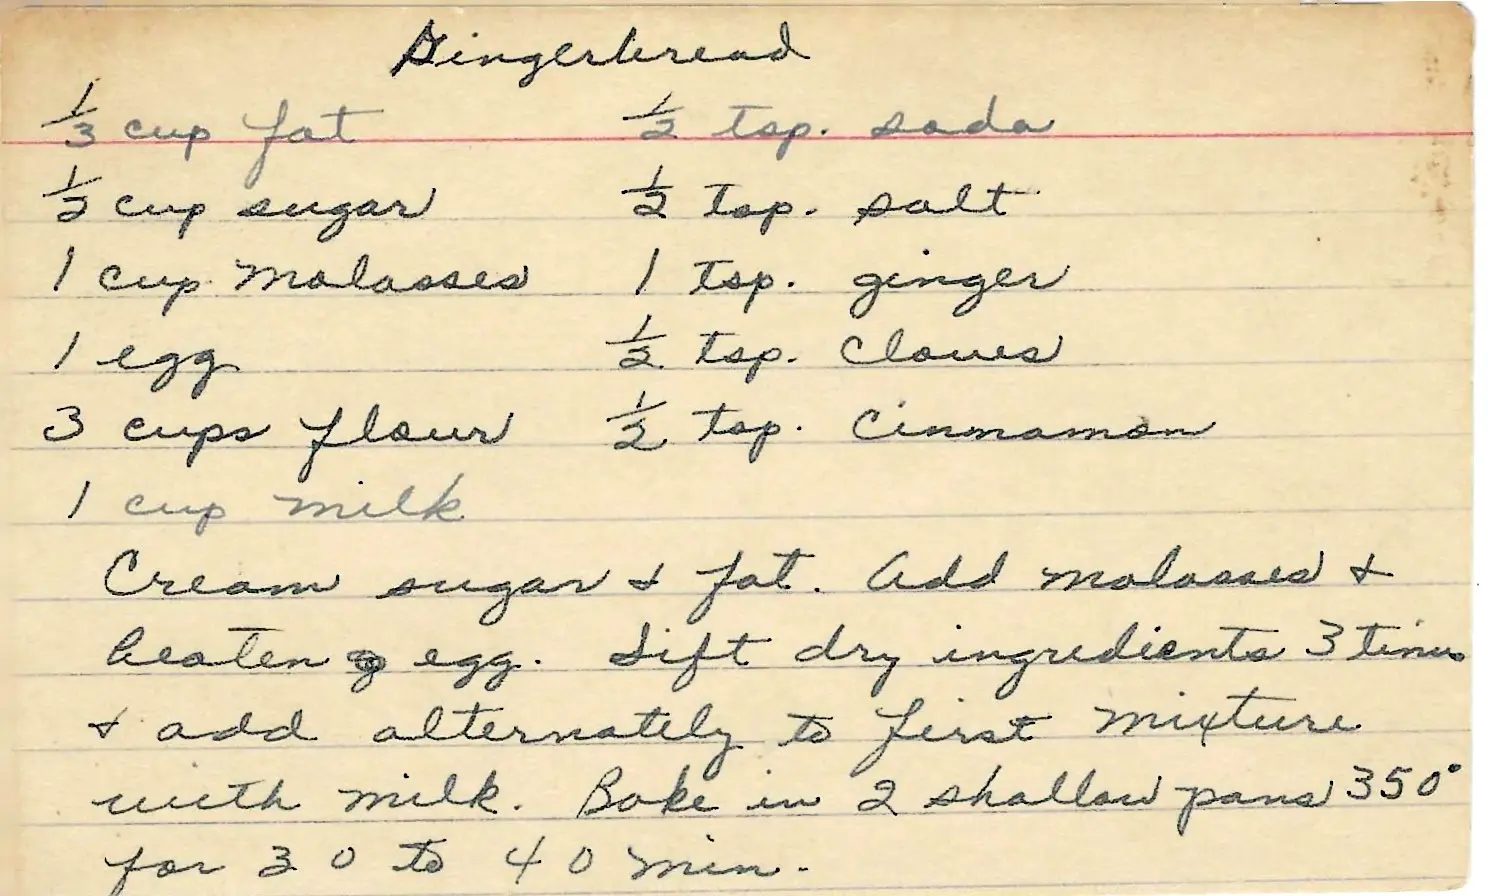 Gingerbread
1/3 cup fat 1/2 tsp. soda
1/2 cup sugar 1/2 tsp. salt
1 cup molasses 1 tsp. ginger
1 egg 1/2 tsp. Cloves
3 cups flour 1/2 tsp. Cinnamon
1 cup milk
Cream sugar & fat. Add molasses &
beaten egg. Sift dry ingredients 3 times
& add alternately to first mixture
with milk. Bake in 2 shallow pans 350°
for 30 to 40 min.